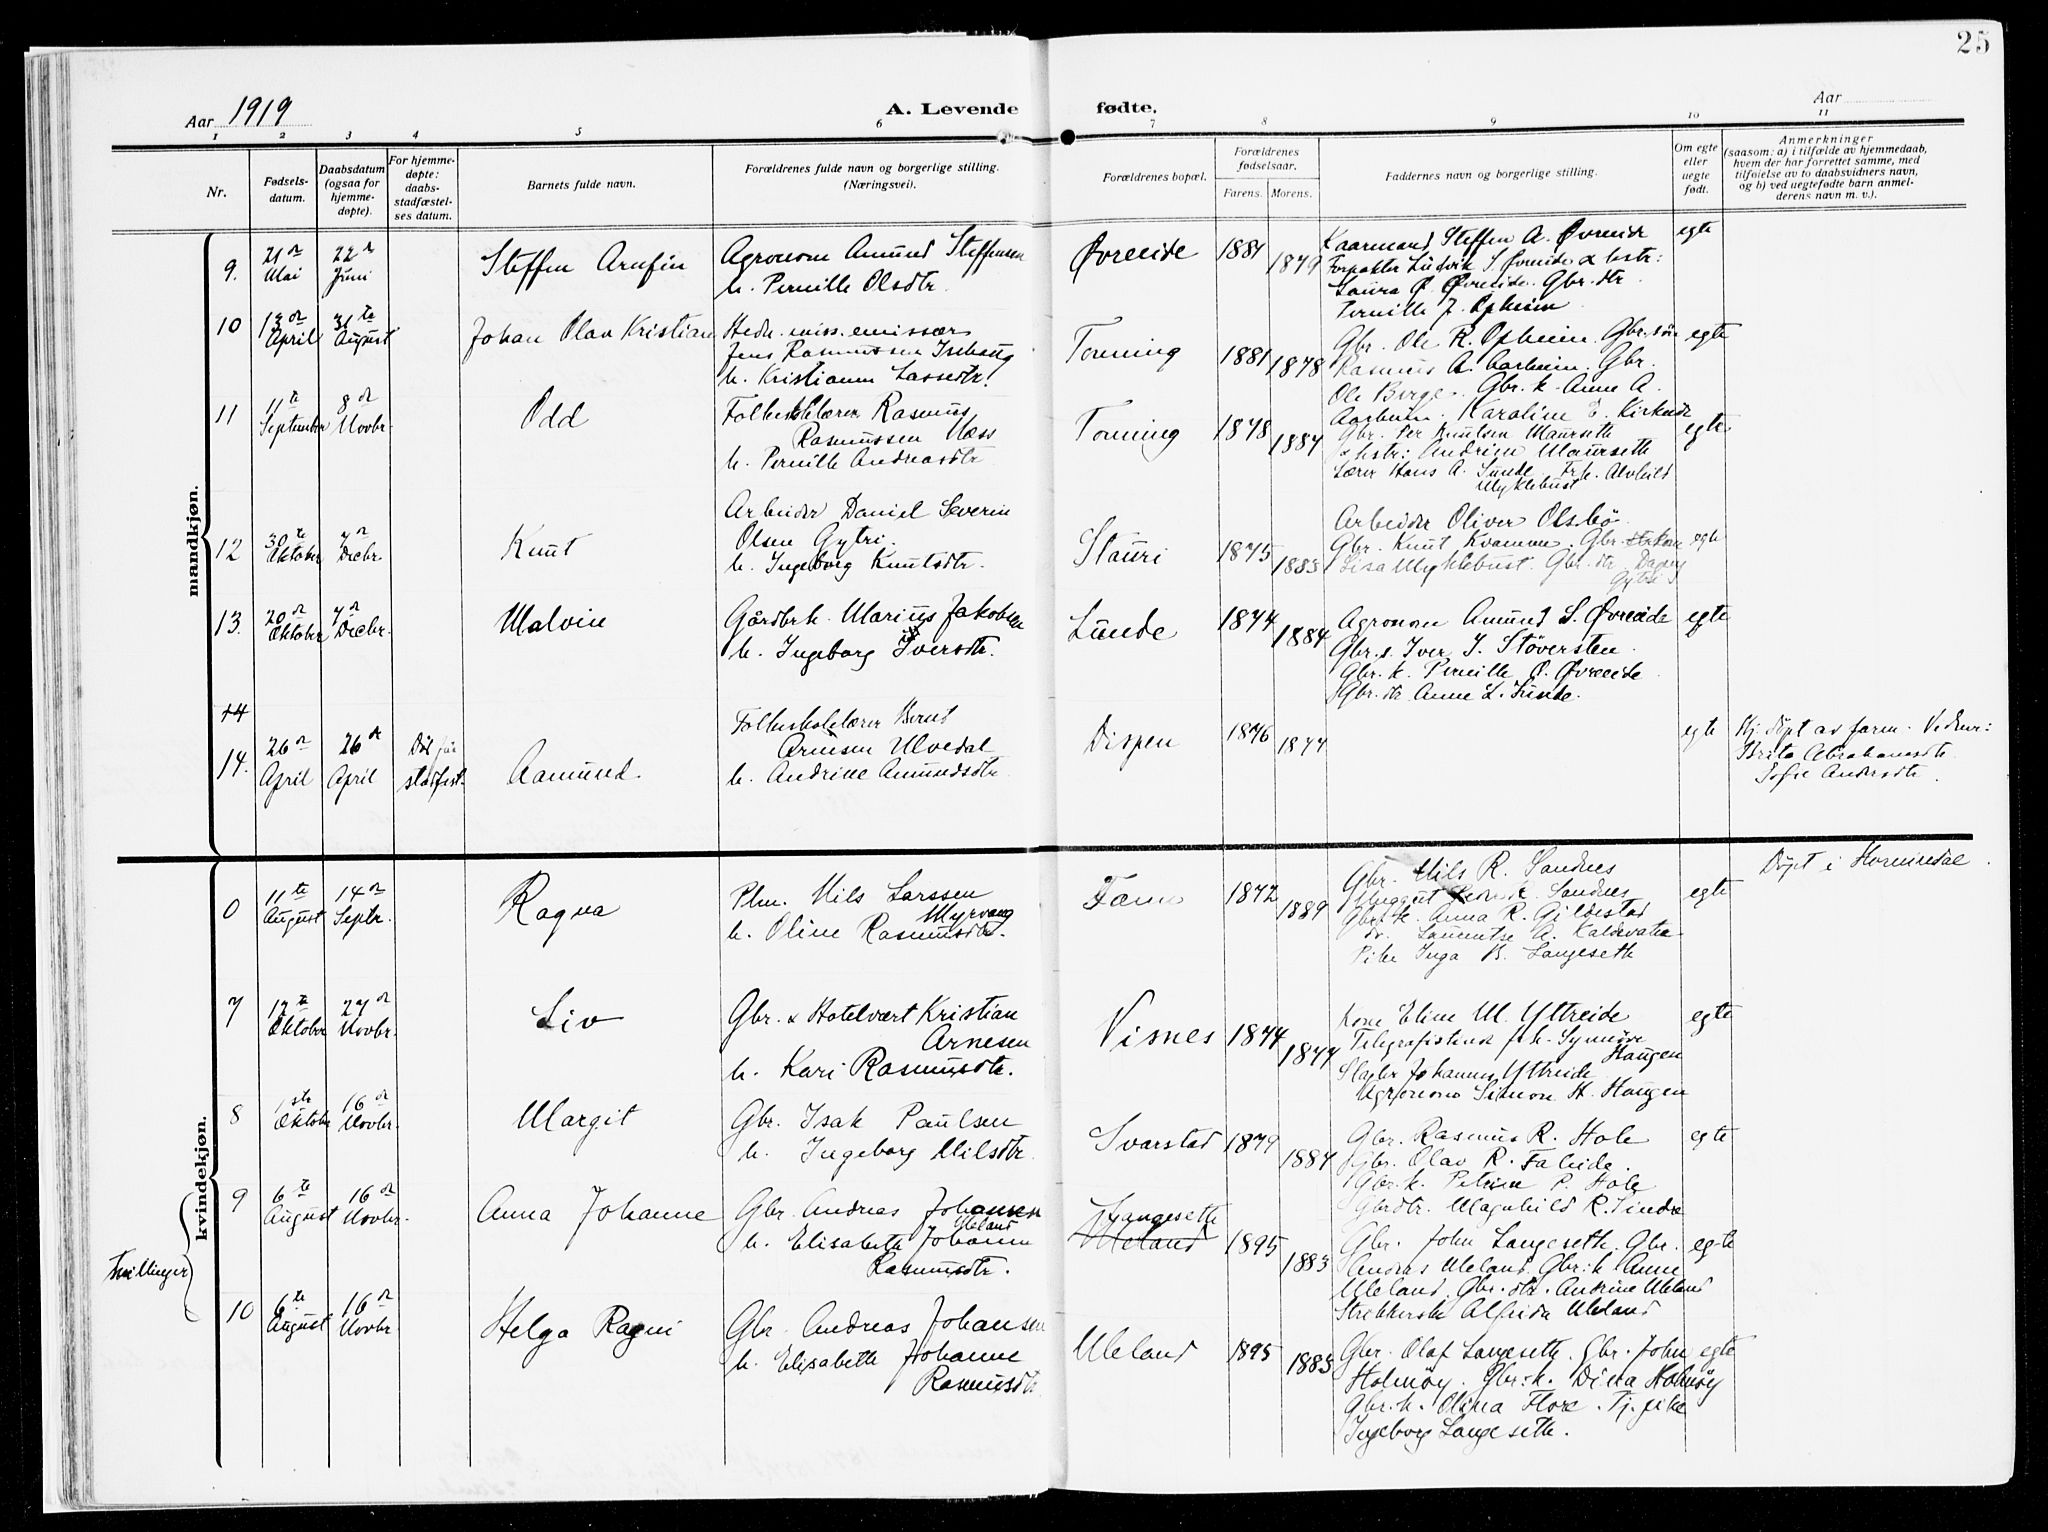 25
Aar 1919
A. Levende fødte.
Aar
1 2 3 4 5 6 7 8 9 10 11
Nr.
Fødsels-
datum.
Daabsdatum
(ogsaa for
hjemme-
døpte).
For hjemme-
døpte:
daabs-
stadfæstel-
ses datum.
Barnets fulde navn.
Forældrenes fulde navn og borgerlige stilling.
(Næringsvei).
Forældrenes bopæl.
Forældrenes
fødselsaar.
Farens. Morens.
Faddernes navn og borgerlige stilling.
Om egte
eller
uegte
født.
Anmerkninger
(saasom: a) i tilfælde av hjemmedaab,
hvem der har forrettet samme, med
tilføielse av to daabsvidners navn,
og b) ved uegtefødte barn anmel-
derens navn m. v.).
mandkjøn.
9.
21de
Mai
22de
Juni
Steffen Arnfin
Agronom Amund Steffensen
h. Pernille Olsdtr.
Øvreeide
1881
1879
Kaarmand Steffen A. Øvreide
Forpakter Ludvik S. Øvreide & hstr:
Laura O. Øvreide. Gbr. dtr.
Pernille J. Opheim
egte
10
13de
April
31te
August
Johan Olav Kristian
Hedn. miss. emissær
Jens Rasmussen
h. Kristianne Lassedtr.
Tonning
1881
1878
Gbr. Ole R. Opheim. Gbr. søn
Rasmus A. Aarheim. Gbr.
Ole Berge. Gbr. k. Anne A.
Aarheim. Karoline E. Kirkeide
egte
11
11te
September
8de
Novbr.
Odd
Folkeskolelærer Rasmus
Rasmussen Næss
h. Pernille Andreasdtr.
Tonning
1878
1884
Gbr. Per Knutsen Maurseth
& hstr: Andrine Maurseth
Lærer Hans A. Sunde. Frk. Alvhild
Myklebust
egte
12
30te
Oktober
7de
Decbr
Knut
Arbeider Daniel Severin
Olsen Gytri.
h. Ingeborg Knutsdtr.
Stauri
1875
1883
Arbeider Oliver Olsbö
Gbr. Knut Kvamme. Gbr. kone
Lisa Myklebust. Gbr. dtr. Dagny
Gytri
egte
13.
20de
Oktober
7de
Decbr.
Malvin
Gårdbrk. Marius Jakobsen
h. Ingeborg Iversdtr.
Lunde
1874
1884
Agronom Amund S. Øvreeide
Gbr. s. Iver J. Støversten
Gbr. k. Pernille O. Øvreeide
Gbr. dtr Anne L. Lunde.
egte
14
14.
26de
April
26de
April
Död før
stadfest.
Aamund.
Folkeskolelærer Bernt
Arnesen Ulvedal
h. Andrine Amundsdtr.
Dispen
1876
1877
egte
Hj. döpt av farm. Vidner:
Brita Abrahamsdtr.
Sofie Andersdtr.
kvindekjøn.
11te
August
14de
Septr.
Ragna
Plm. Nils Larssen
Myrvang
h. Oline Rasmusdtr.
1872
1889
Gbr. Nils R. Sandnes
Gbr. k. Anna R. Gildestad
dr. Laurentse A. Kaldevatn
Pike Inga B. Langeseth
egte
Döpt i Hornindal
7
12te
Oktober
27de
Novbr.
Liv
Gbr. & Hotelvært Kristian
Arnesen
h. Kari Rasmusdtr.
Visnes
1874
1877
Kone Eline M. Yttreide
Telegrafistinde frk. Synnöve
Haugen
Slagter Johannes Yttreide
Agronom Simon H. Haugen
egte
8
1ste
Oktober
16de
Novbr.
Margit
Gbr. Isak Paulsen
h. Ingeborg Nilsdtr
Svarstad
1879
1884
Gbr. Rasmus R. Hole
Gbr. Olav R. Faleide.
Gbr. k. Petrine P. Hole
Gbrdtr. Magnhild R. Sindre
egte
Tvillinger
9
6te
August
16de
Novbr.
Anna Johanne
Gbr. Andreas Johansen
Uleland
h. Elisabeth Johanne
Rasmusdtr.
Langeseth
Uleland
1895
1883
Gbr. John Langeseth. Gbr.
Andreas Uleland. Gbr: k. Anne
Uleland. Gbr. dtr. Andrine Uleland
Strikkerske Alfrida Uleland
egte
10
6te
August
16de
Novbr.
Helga Ragni
Gbr. Andreas Johansen
h. Elisabeth Johanne
Rasmusdtr.
Uleland
1895
1883
Gbr. Olaf Langeseth. Gbr. John
Holmöy. Gbr: k. Dina Holmöy
Gbr. k. Olina Flore. Tj. pike
Ingeborg Langeseth.
egte